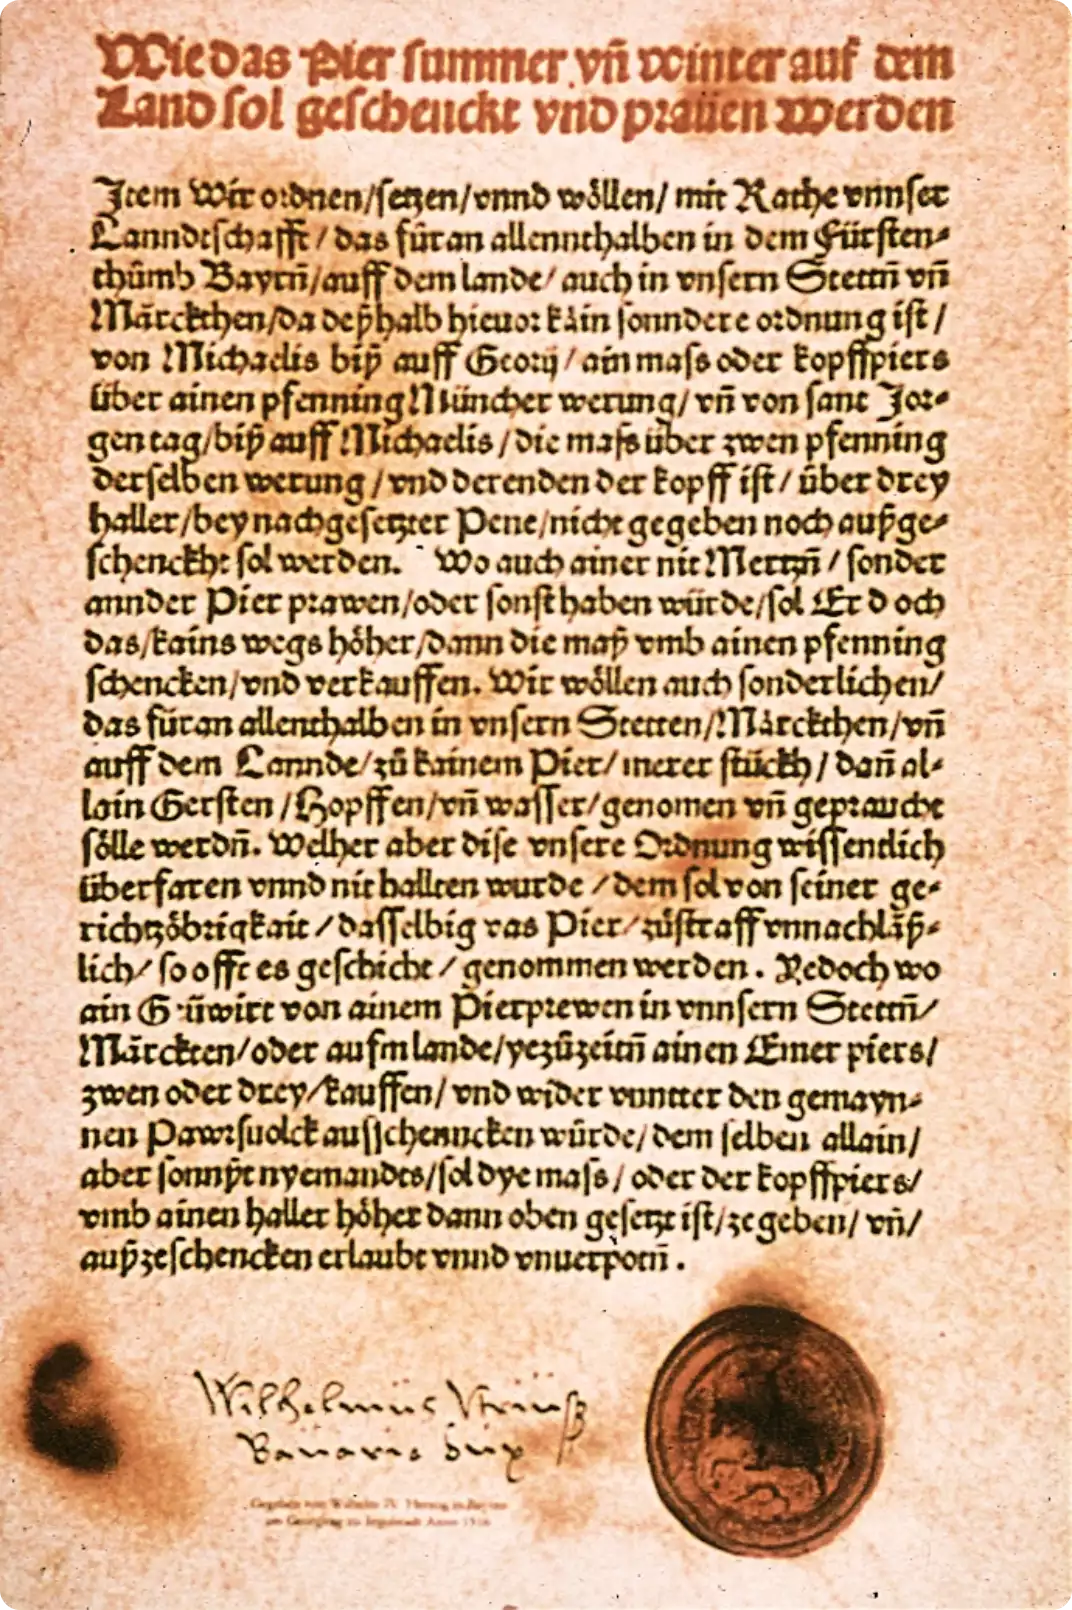 Wie das Pier summer vñ winter auf dem
Land sol geschenckt vnd praüen werden
Item Wir ordnen/setzen/vnnd wöllen/ mit Rathe vnnser
Lanndtschafft / das für an allennthalben in dem Fürsten⸗
thůmb Bayrñ/auff dem lande/ auch in vnsern Stettñ vñ
Märckthen/da deßhalb hieuor kain sonndere ordnung ist /
von Michaelis biß auff Georij / ain mass oder kopffpiers
über ainen pfenning Müncher werung/ vñ von sant Jor⸗
gen tag/biß auff Michaelis / die mass über zwen pfenning
derselben werung / vnd derenden der kopff ist / über drey
haller/bey nachgesetzter Pene/nicht gegeben noch außge⸗
schenckht sol werden. Wo auch ainer nit Mertzñ / sonder
annder Pier prawen/oder sonst haben würde/sol Er doch
das/kains wegs höher/dann die maß vmb ainen pfenning
schencken/vnd verkauffen. Wir wöllen auch sonderlichen/
das füran allenthalben in vnsern Stetten/Märckthen/vñ
auff dem Lannde/zů kainem Pier/ merer stückh / dañ al⸗
lain Gersten /Hopffen/vñ wasser/genomen vñ gepraucht
sölle werdñ. Welher aber dise vnsere Ordnung wissentlich
überfaren vnnd nit hallten wurde / dem sol von seiner ge⸗
richtzöbrigkait / dasselbig vas Pier/ zůstraff vnnachläß⸗
lich/ so offt es geschicht / genommen werden . Yedoch wo
ain Gůwirt von ainem Pierprewen in vnnsern Stettñ/
Märckten/oder aufm lande/yezůzeitñ ainen Emer piers/
zwen oder drey/kauffen/ vnd wider vnntter den gemayn⸗
nen Pawrsuolck ausschenncken würde/ dem selben allain/
aber sonnßt nyemandts/sol dye mass / oder der kopffpiers/
vmb ainen haller höher dann oben gesetzt ist/ze geben/ vñ/
außzeschencken erlaubt vnnd vnuerpotñ .
Wilhelmus
dux
Gegeben von Wilhelm IV. Herzog in Bayern
am Georgitag zu Ingolstadt Anno 1516